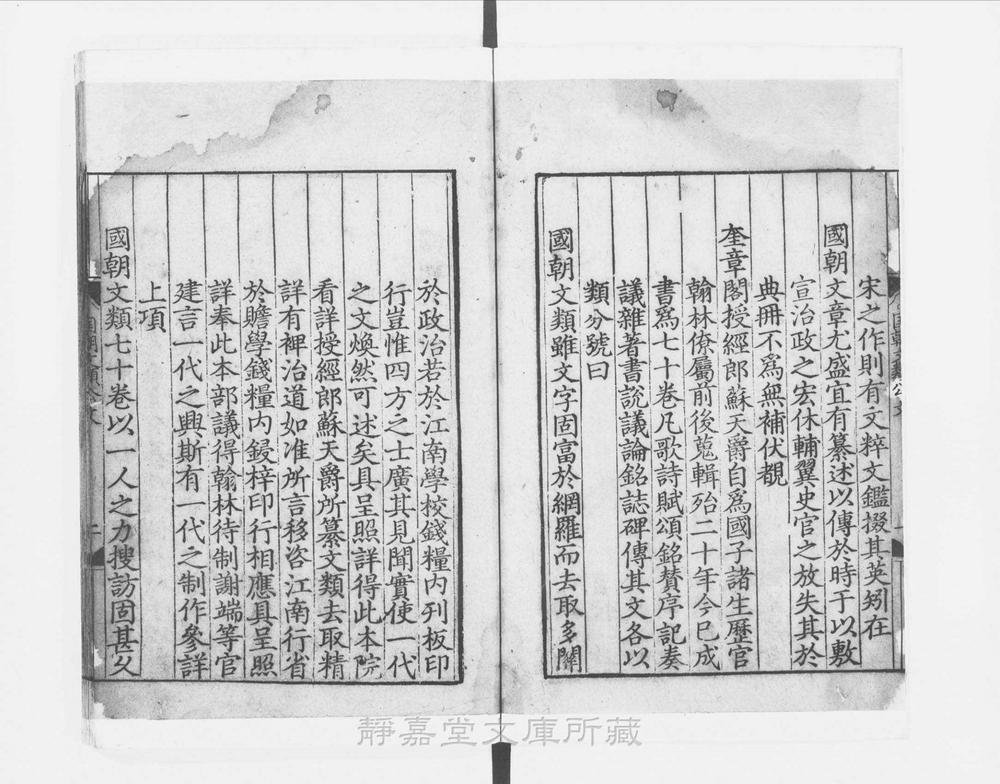 宋之作則有文粹文鑑掇其英矧在
國朝文章尤盛宜有纂述以傳於時于以敷
宣治政之宏休輔翼史官之放失其於
典冊不爲無補伏覩
奎章閣授經郎蘇天爵自爲國子諸生歷官
翰林僚屬前後蒐輯殆二十年今已成
書爲七十卷凡歌詩賦頌銘賛序記奏
議雜著書說議論銘誌碑傳其文各以
類分號曰
國朝文類雖文字固富於網羅而去取多關
於政治若於江南學校錢糧内列板印
行豈惟四方之士廣其見聞實使一代
之文煥然可述矣具呈照詳得此本院
看詳授經郎蘇天爵所纂文類去取精
詳有裨治道如准所言移咨江南行省
於贍學錢糧内鋟梓印行相應具呈照
詳奉此本部議得翰林待制謝端等官
建言一代之興斯有一代之制作參詳
上項
國朝文類七十卷以一人之力搜訪固甚久
靜嘉堂文庫所藏